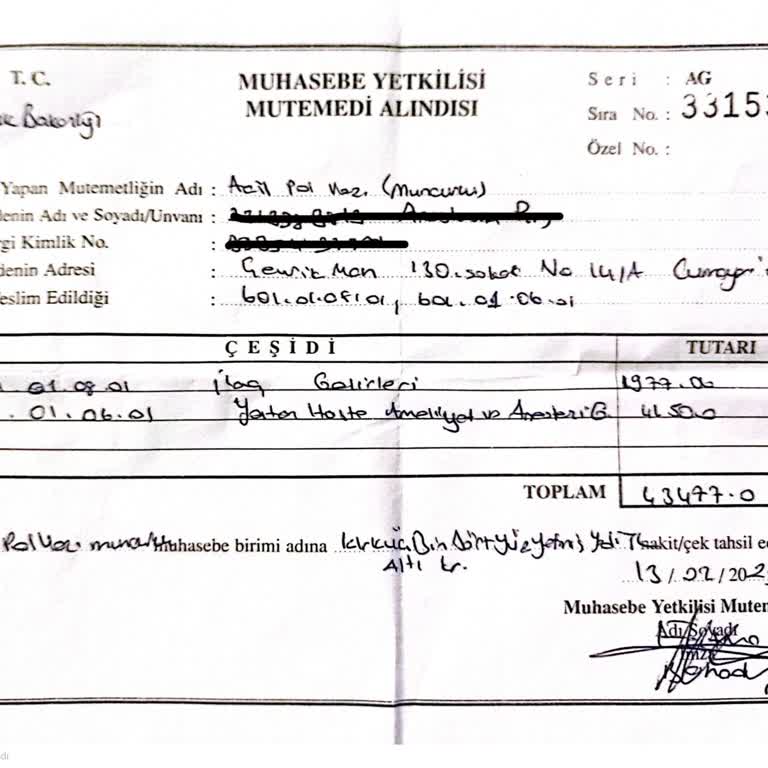 T. C.
MUHASEBE YETKİLİSİ
MUTEMEDİ ALINDISI
Seri : AG
Sıra No. : 3315
Özel No. :
Yapan Mutemetliğin Adı : Acil Pol Vez. (Muncurus)
enin Adı ve Soyadı/Unvanı :
gi Kimlik No. :
enin Adresi : 130. sokak No 14/A
eslim Edildiği : 601.01.08.01, 601.01.06.01
ÇEŞİDİ TUTARI
01.08.01 İlaç Gelirleri 1977.00
.01.06.01 Yatan Hasta Ameliyat ve 41500
TOPLAM 43477.0
muhasebe birimi adına Kırküç Bin Dörtyüz Yetmiş Yedi Tl nakit/çek tahsil e
Altı kr.
13/02/202
Muhasebe Yetkilisi Mutem
Adı Soyadı